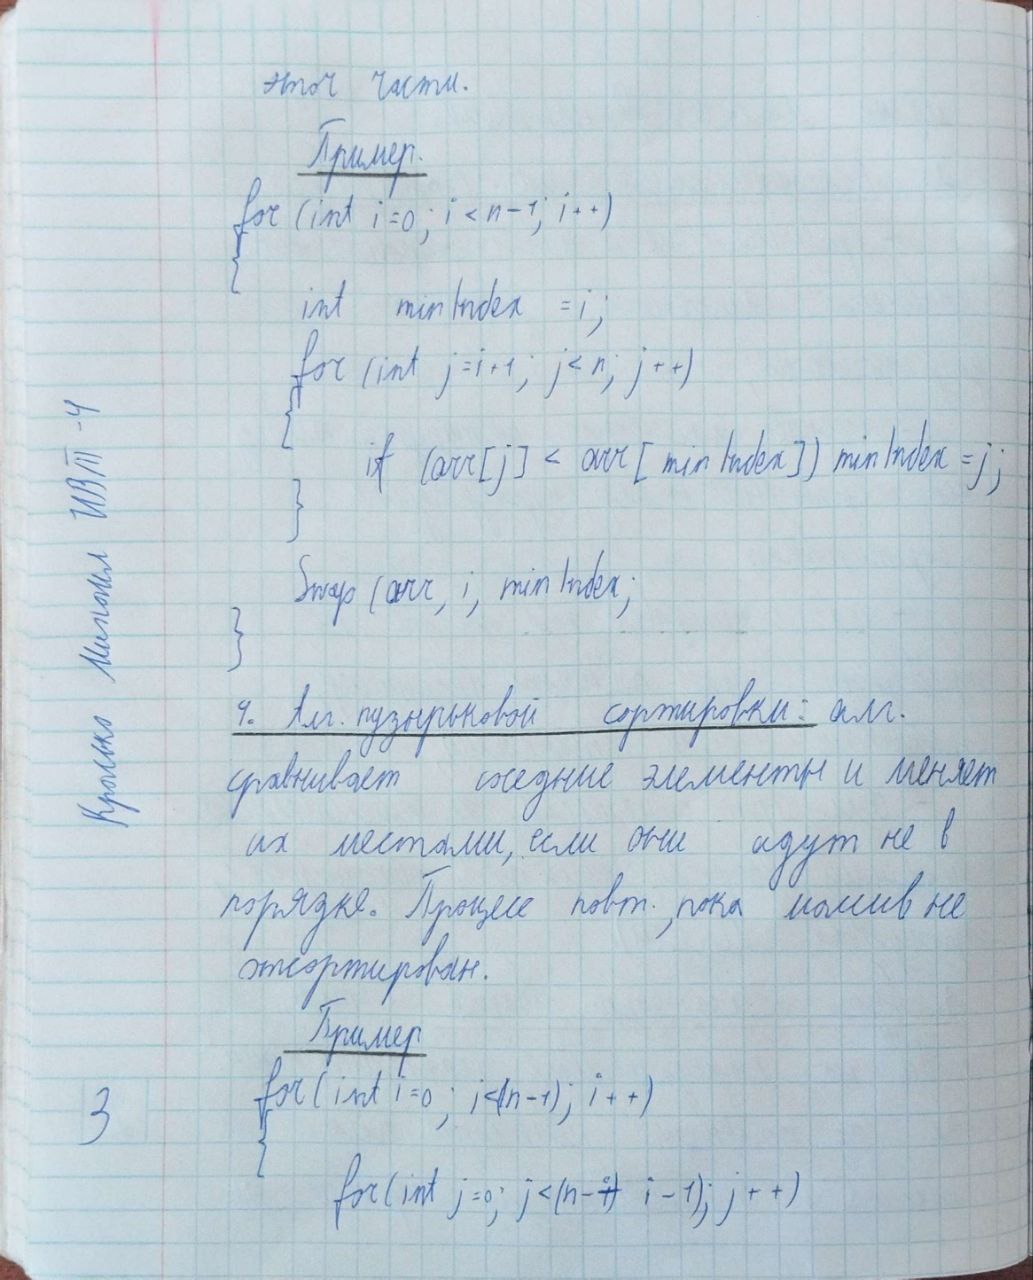 этой части.
Пример.
for (int i=0; i < n-1; i++)
{
int minIndex = i;
for (int j=i+1; j < n; j++)
{
if (arr[j] < arr[minIndex]) minIndex = j;
}
Swap (arr, i, minIndex;
}
4. Алг. пузырьковой сортировки: алг.
сравнивает соседние элементы и меняет
их местами, если они идут не в
порядке. Процесс повт., пока массив не
отсортирован.
Пример
for (int i=0; i<(n-1); i++)
{
for (int j=0; j<(n- i-1); j++)
ИВТ-4
3